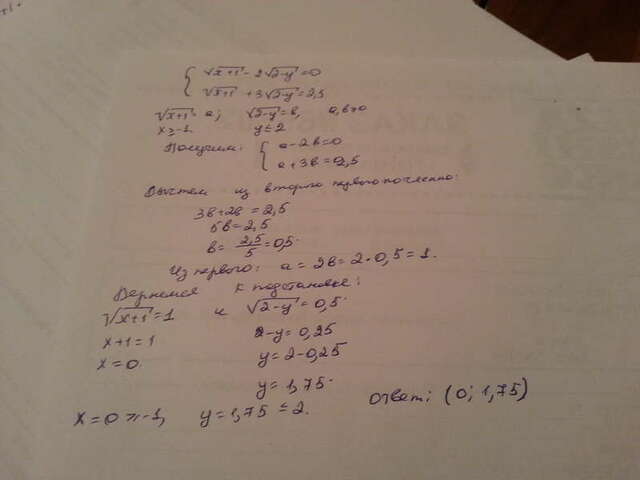 √x+1 - 2√2-y = 0
√x+1 + 3√2-y = 2,5
√x+1 = a; √2-y = в, a,в≥0
x ≥ -1 y ≤ 2
Получим: a - 2в = 0
a + 3в = 2,5
Вычтем из второго первое почленно:
3в + 2в = 2,5
5в = 2,5
в = 2,5/5 = 0,5.
Из первого: a = 2в = 2·0,5 = 1.
Вернемся к подстановке:
√x+1 = 1 и √2-y = 0,5.
x+1 = 1 2-y = 0,25
x = 0. y = 2-0,25
y = 1,75.
x = 0 ≥ -1, y = 1,75 ≤ 2. Ответ: (0; 1,75)